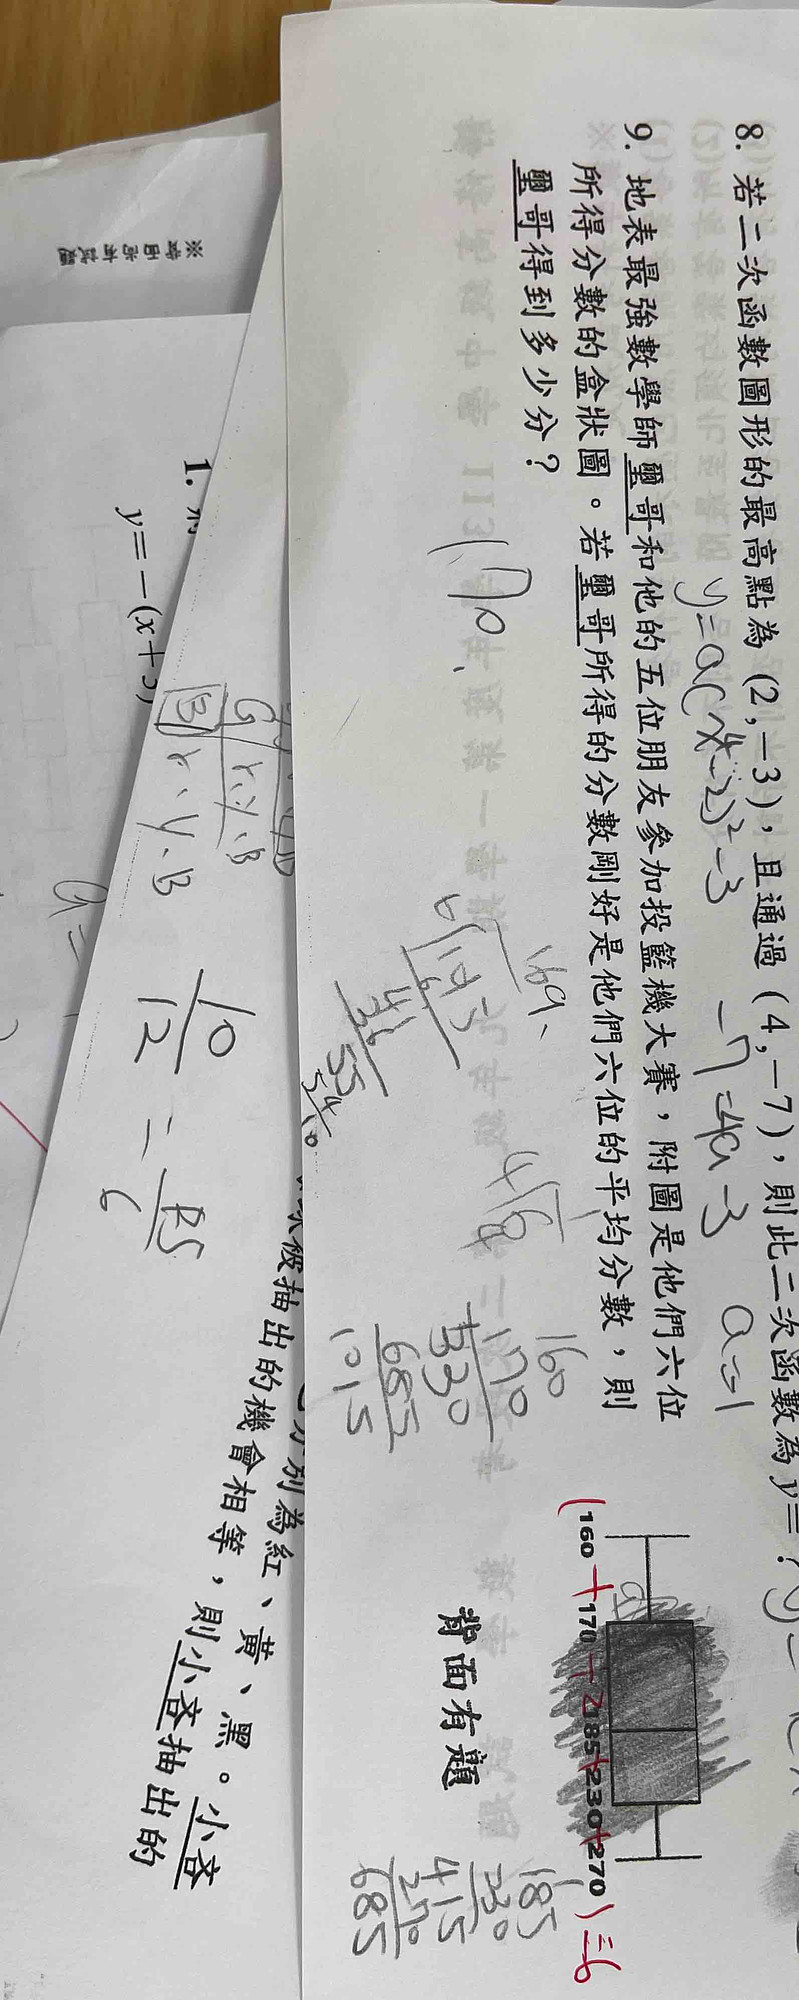 8. 若二次函數圖形的最高點為 (2,−3)，且通過 (4,−7)，則此二次函數為 y=?
y=a(x-2)²-3
-7=4a-3
a=-1
9. 地表最強數學師璽哥和他的五位朋友參加投籃機大賽，附圖是他們六位
所得分數的盒狀圖。若璽哥所得的分數剛好是他們六位的平均分數，則
璽哥得到多少分？
170
169
160
170
330
685
1015
(160+170+2185+230+270)÷6
185
230
415
270
685
背面有題
分別為紅、黃、黑。小杏
被抽出的機會相等，則小杏抽出的
10/12 =
1.
y=−(x+
※背面尚有試題